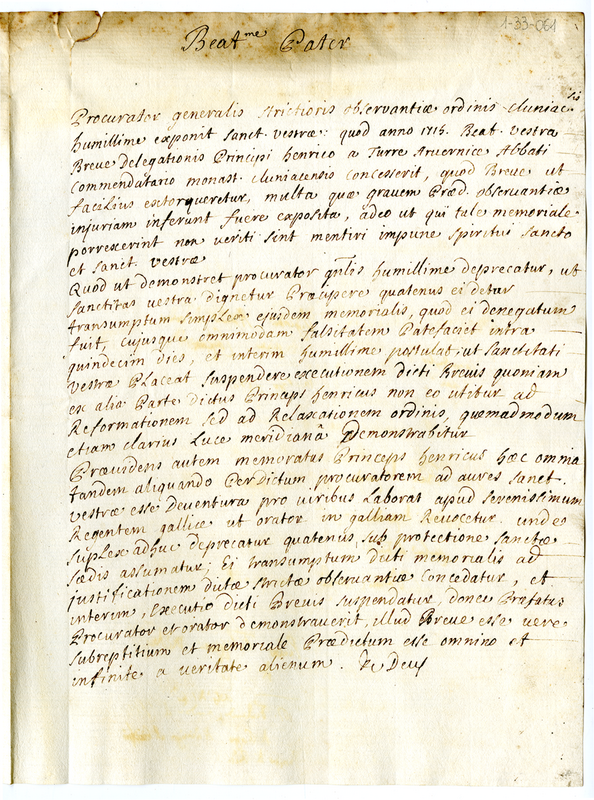 1-33-061
Beat.me Pater
Procurator generalis strictioris observantiæ ordinis cluniac-sis
humillime exponit sanct. vestræ: quod anno 1715. Beat. vestra
Breve Delegationis Principi henrico a Turre Arvernice Abbati
Commendatario monast. cluniacensis concesserit, quod Breve ut
facilius extorqueretur, multa quæ gravem Præd. observantiæ
injuriam inferunt fuere exposita, adeo ut qui tale memoriale
porrexerint non veriti sint mentiri impune spiritui sancto
et sanct. vestræ
Quod ut demonstret procurator gnlis humillime deprecatur, ut
sanctitas vestra dignetur Præcipere quatenus ei detur
transumptum simplex ejusdem memorialis, quod ei denegatum
fuit, cujusque omnimodam falsitatem Patefaciet intra
quindecim dies, et interim humillime postulat, ut sanctitati
vestræ Placeat suspendere executionem dicti Brevis quoniam
ex alia Parte dictus Princeps henricus non eo utitur ad
Reformationem sed ad Relaxationem ordinis, quemadmodum
etiam clarius Luce meridianâ Demonstrabitur
Prævidens autem memoratus Princeps henricus hæc omnia
tandem aliquando Per dictum procuratorem ad aures sanct.
vestræ esse Deventura pro viribus Laborat apud serenissimum
Regentem galliæ ut orator in galliam Revocetur. unde
suplex adhuc deprecatur quatenus sub protectione sanctæ
sædis assumatur; Ei transumptum dicti memorialis ad
justificationem dictæ strictæ observantiæ concedatur, et
interim, Executio dicti Brevis suspendatur, donec Præfatus
Procurator et orator demonstraverit, illud Breve esse vere
subreptitium et memoriale Prædictum esse omnino et
infinite a veritate alienum. Deus